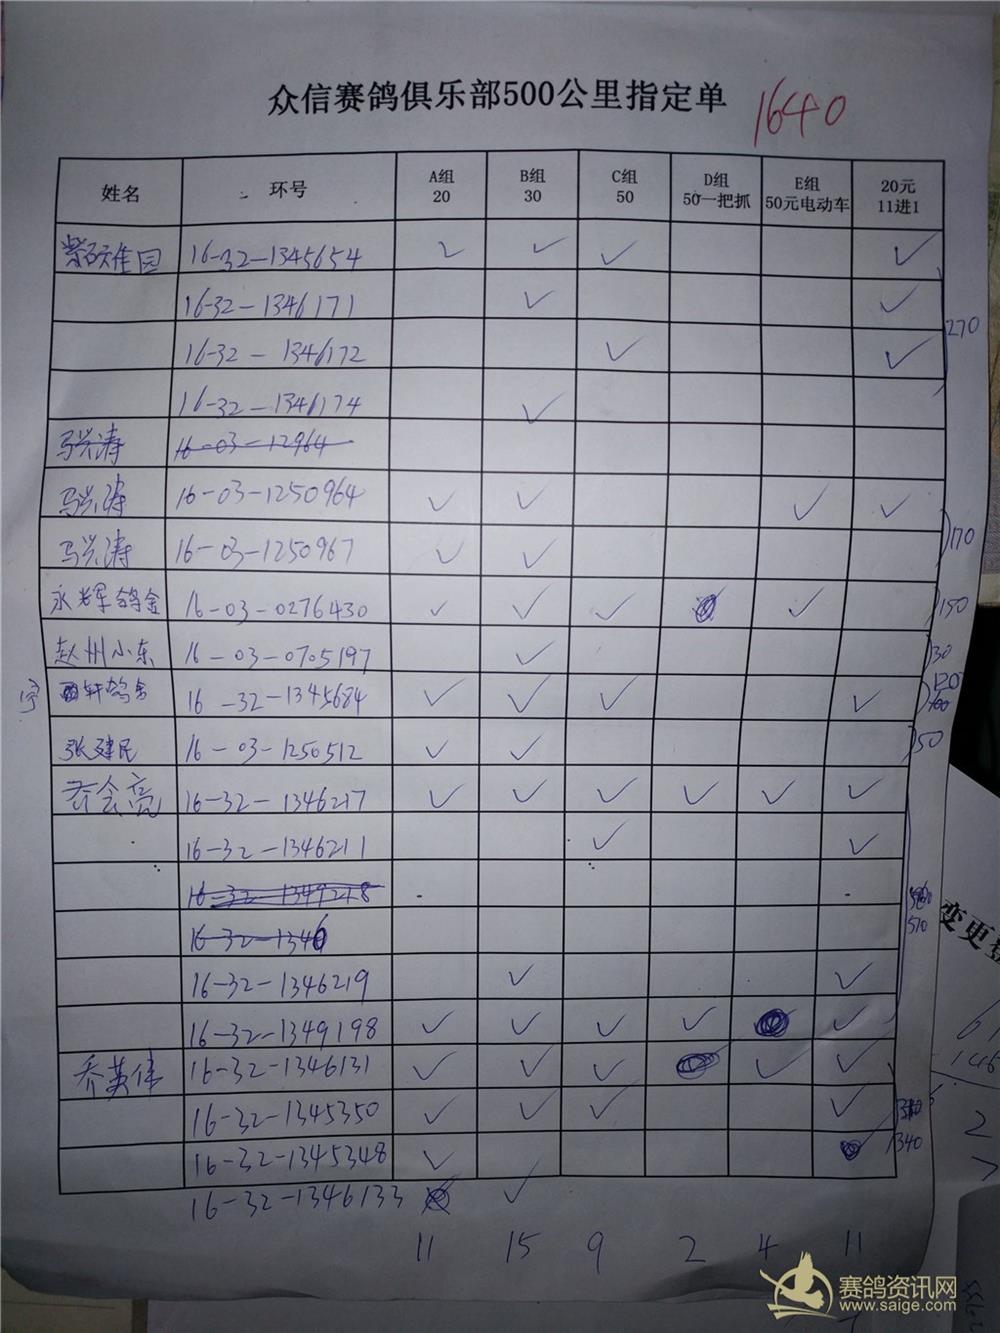 众信赛鸽俱乐部500公里指定单
1640
姓名 环号 A组 20 B组 30 C组 50 D组 50一把抓 E组 50元电动车 20元 11进1
16-32-1345654 ✓ ✓ ✓ ✓
16-32-1346171 ✓ ✓
270
16-32-1346172 ✓ ✓
16-32-1346174 ✓
马兴涛 16-03-12964
马兴涛 16-03-1250964 ✓ ✓ ✓ ✓
170
马兴涛 16-03-1250967 ✓ ✓
永辉鸽舍 16-03-0276430 ✓ ✓ ✓ ✓ 150
赵州小东 16-03-0705197 ✓ 30
宇轩鸽舍 16-32-1345684 ✓ ✓ ✓ ✓ 120
张建民 16-03-1250512 ✓ ✓ 50
乔会亮 16-32-1346217 ✓ ✓ ✓ ✓ ✓ ✓
16-32-1346211 ✓ ✓
16-32-1349218
16-32-1346
510
16-32-1346219 ✓ ✓
16-32-1349198 ✓ ✓ ✓ ✓ ✓
乔英伟 16-32-1346131 ✓ ✓ ✓ ✓ ✓
16-32-1345350 ✓ ✓ ✓ ✓
340
16-32-1345348 ✓
16-32-1346133 ✓
11 15 9 2 4 11
变更
赛鸽资讯网
www.saige.com